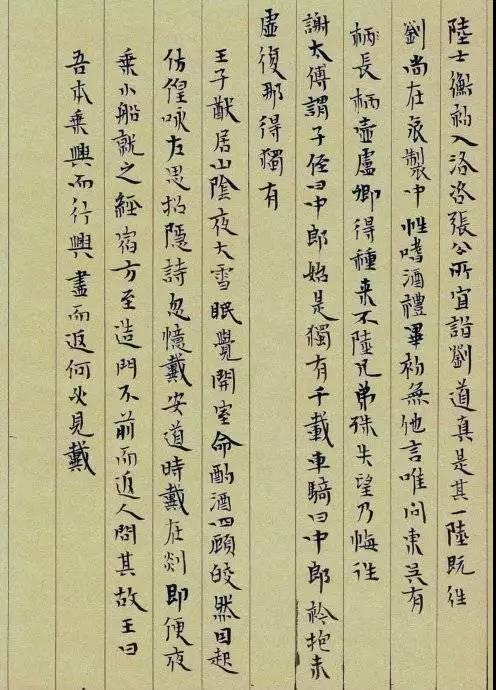 陸士衡初入洛咨張公所宜詣劉道真是其一陸既往
劉尚在哀製中性嗜酒禮畢初無他言唯问東吳有
柄長柄壺盧卿得種来不陸兄弟殊失望乃悔往
謝太傅謂子侄曰中郎始是獨有千載車騎曰中郎衿抱未
虛復那得獨有
王子猷居山陰夜大雪眠覺開室命酌酒四顧皎然因起
仿偟咏左思招隱詩忽憶戴安道時戴在剡即便夜
乘小船就之經宿方至造門不前而返人問其故王曰
吾本乘興而行興盡而返何必見戴